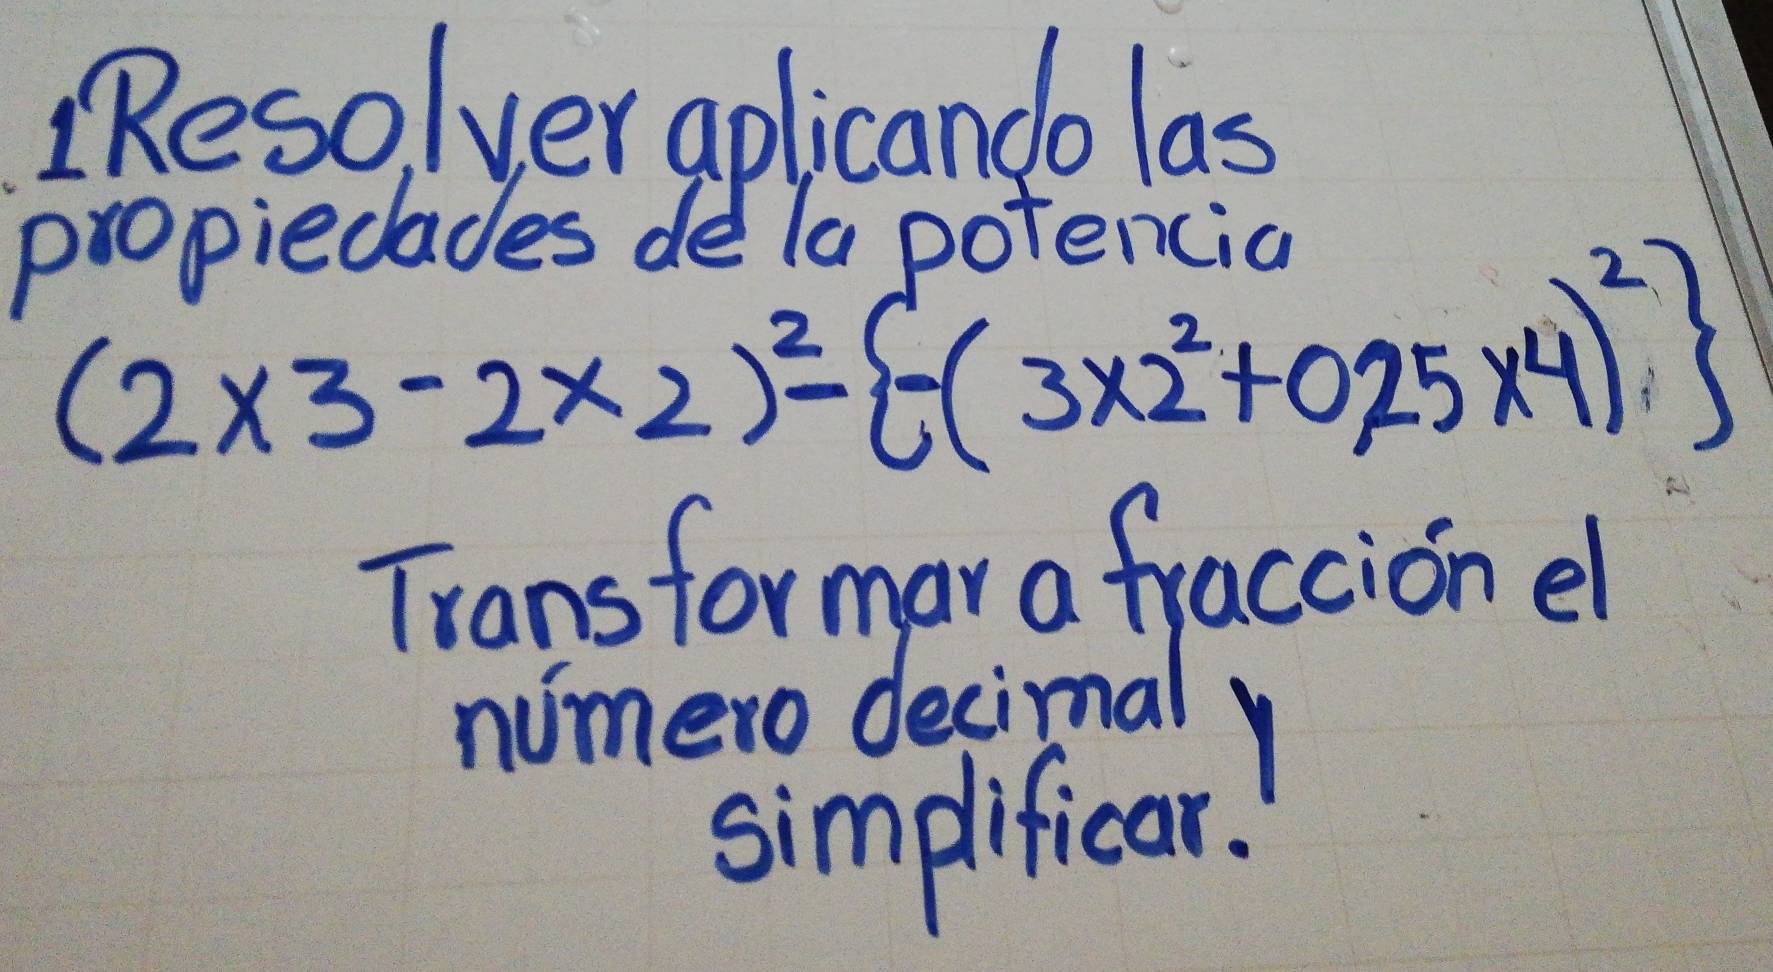 1 Resolver aplicando las
propiedades de la potencia
(2x3-2x2)²-{-(3x2²+0,25x4)²}
Transformar a fracción el
número decimal y
simplificar.